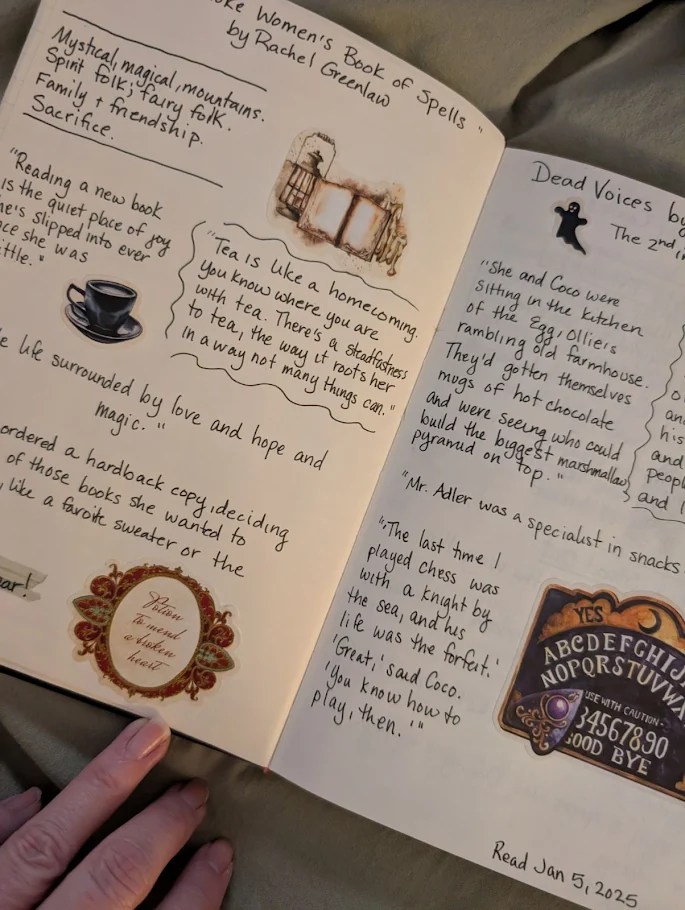 Women's Book of Spells"
by Rachel Greenlaw
Mystical, magical, mountains.
Spirit folk; fairy folk.
Family + friendship.
Sacrifice.
"Reading a new book
is the quiet place of joy
she's slipped into ever
since she was
little."
"Tea is like a homecoming.
You know where you are
with tea. There's a steadfastness
to tea, the way it roots her
in a way not many things can."
life surrounded by love and hope and
magic."
ordered a hardback copy, deciding
of those books she wanted to
, like a favorite sweater or the
Potion
to mend
a broken
heart
Dead Voices by
The 2nd
"She and Coco were
sitting in the kitchen
of the Egg, Ollie's
rambling old farmhouse.
They'd gotten themselves
mugs of hot chocolate
and were seeing who could
build the biggest marshmallow
pyramid on top."
and
his
and
people
and
"Mr. Adler was a specialist in snacks
"'The last time I
played chess was
with a knight by
the sea, and his
life was the forfeit.'
'Great,' said Coco.
'You know how to
play, then.'"
YES
ABCDEFGHIJ
NOPQRSTUVWX
USE WITH CAUTION
34567890
GOOD BYE
Read Jan 5, 2025